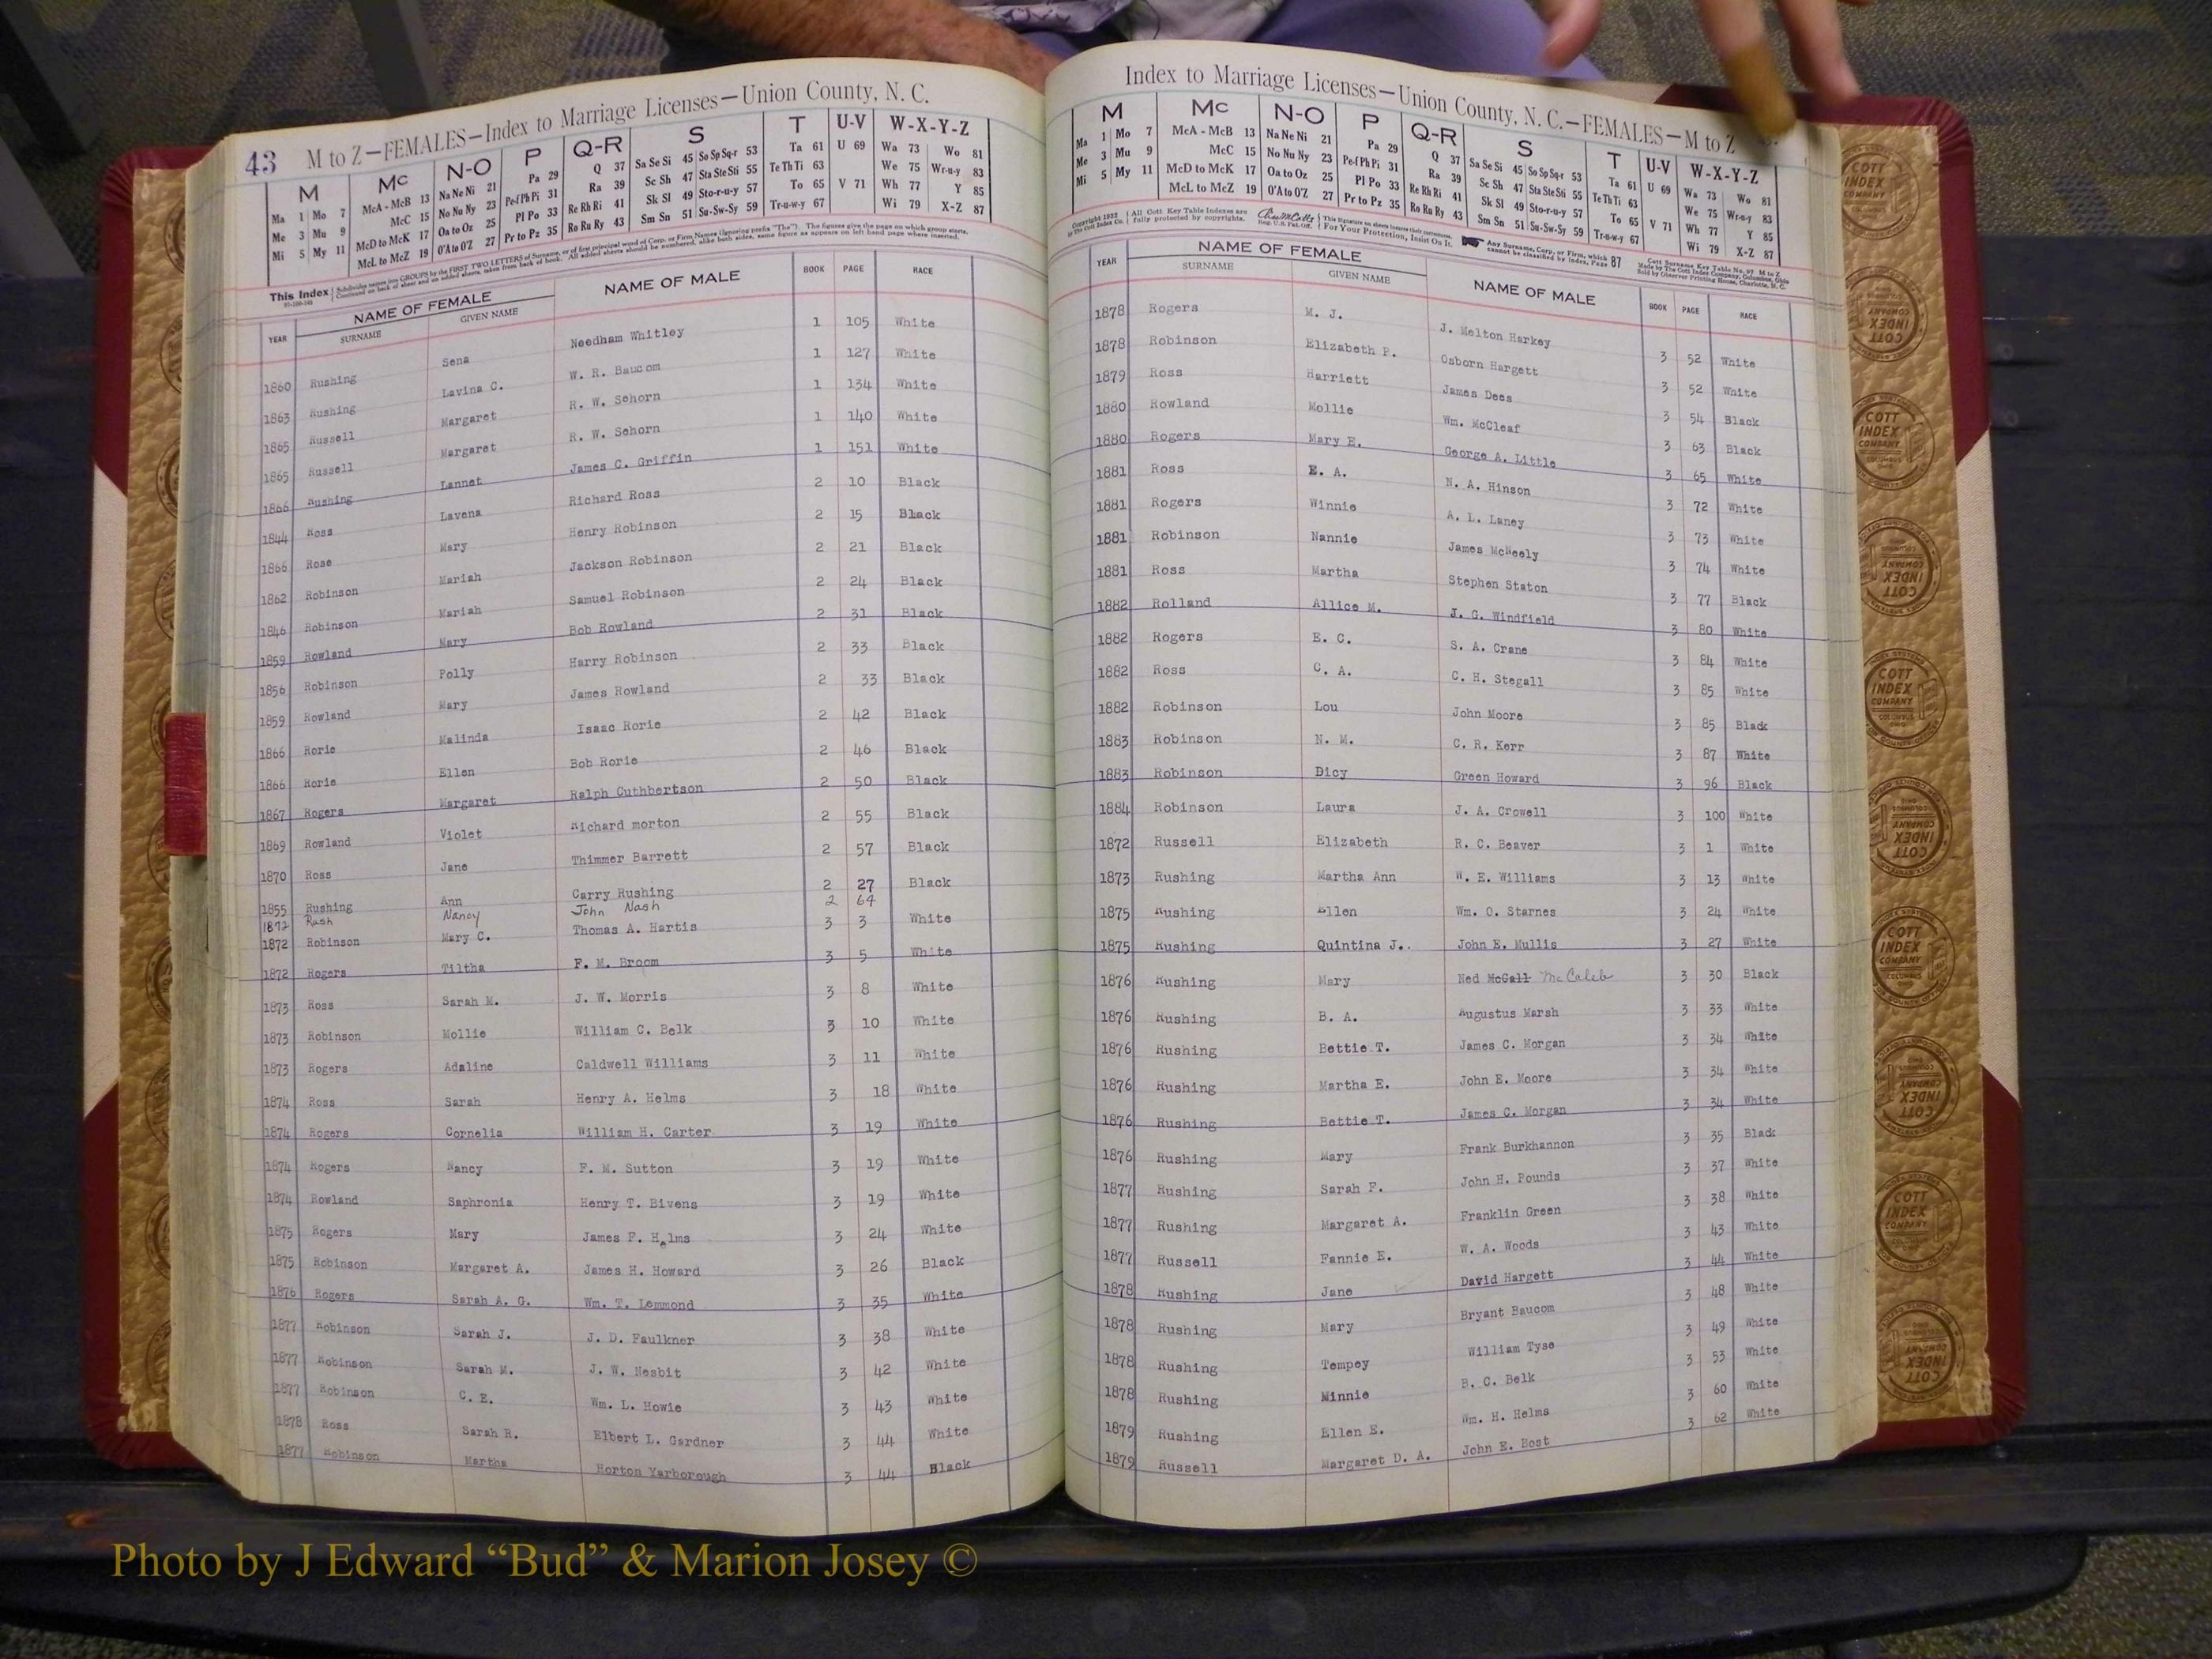 43 M to Z—FEMALES—Index to Marriage Licenses—Union County, N. C.
M Mc N-O P Q-R S T U-V W-X-Y-Z
Ma 1 Mo 7 McA - McB 13 Na Ne Ni 21 Pa 29 Q 37 Sa Se Si 45 So Sp Sq-r 53 Ta 61 U 69 Wa 73 Wo 81
Me 3 Mu 9 McC 15 No Nu Ny 23 Pe-f Ph Pi 31 Ra 39 Sc Sh 47 Sta Ste Sti 55 Te Th Ti 63 We 75 Wr-u-y 83
Mi 5 My 11 McD to McK 17 Oa to Oz 25 Pl Po 33 Re Rh Ri 41 Sk Sl 49 Sto-r-u-y 57 To 65 V 71 Wh 77 Y 85
McL to McZ 19 O'A to O'Z 27 Pr to Pz 35 Ro Ru Ry 43 Sm Sn 51 Su-Sw-Sy 59 Tr-u-w-y 67 Wi 79 X-Z 87
This Index Subdivides names into GROUPS by the FIRST TWO LETTERS of Surname, or of first principal word of Corp. or Firm Names (Ignoring prefix "The"). The figures give the page on which group starts.
Continued on back of sheet and on added sheets, taken from back of book. All added sheets should be numbered, alike both sides, same figure as appears on left hand page where inserted.
YEAR NAME OF FEMALE SURNAME GIVEN NAME NAME OF MALE BOOK PAGE RACE
1860 Rushing Sena Needham Whitley 1 105 White
1863 Rushing Lavina C. W. R. Baucom 1 127 White
1865 Russell Margaret R. W. Sehorn 1 134 White
1865 Russell Margaret R. W. Sehorn 1 140 White
1866 Rushing Lannet James C. Griffin 1 151 White
1844 Ross Lavena Richard Ross 2 10 Black
1866 Rose Mary Henry Robinson 2 15 Black
1862 Robinson Mariah Jackson Robinson 2 21 Black
1846 Robinson Mariah Samuel Robinson 2 24 Black
1859 Rowland Mary Bob Rowland 2 31 Black
1856 Robinson Polly Harry Robinson 2 33 Black
1859 Rowland Mary James Rowland 2 33 Black
1866 Rorie Malinda Isaac Rorie 2 42 Black
1866 Rorie Ellen Bob Rorie 2 46 Black
1867 Rogers Margaret Ralph Cuthbertson 2 50 Black
1869 Rowland Violet Richard morton 2 55 Black
1870 Ross Jane Thimmer Barrett 2 57 Black
1855 Rushing Ann Carry Rushing 2 27 Black
1872 Rush Nancy John Nash 2 64
1872 Robinson Mary C. Thomas A. Hartis 3 3 White
1872 Rogers Tiltha F. M. Broom 3 5 White
1873 Ross Sarah M. J. W. Morris 3 8 White
1873 Robinson Mollie William C. Belk 3 10 White
1873 Rogers Adaline Caldwell Williams 3 11 White
1874 Ross Sarah Henry A. Helms 3 18 White
1874 Rogers Cornelia William H. Carter 3 19 White
1874 Rogers Nancy F. M. Sutton 3 19 White
1874 Rowland Saphronia Henry T. Bivens 3 19 White
1875 Rogers Mary James F. Helms 3 24 White
1875 Robinson Margaret A. James H. Howard 3 26 Black
1876 Rogers Sarah A. G. Wm. T. Lemmond 3 35 White
1877 Robinson Sarah J. J. D. Faulkner 3 38 White
1877 Robinson Sarah M. J. W. Nesbit 3 42 White
1877 Robinson C. E. Wm. L. Howie 3 43 White
1878 Ross Sarah R. Elbert L. Gardner 3 44 White
1877 Robinson Martha Horton Yarborough 3 44 Black
Index to Marriage Licenses—Union County, N. C.—FEMALES—M to Z
M Mc N-O P Q-R S T U-V W-X-Y-Z
Ma 1 Mo 7 McA - McB 13 Na Ne Ni 21 Pa 29 Q 37 Sa Se Si 45 So Sp Sq-r 53 Ta 61 U 69 Wa 73 Wo 81
Me 3 Mu 9 McC 15 No Nu Ny 23 Pe-f Ph Pi 31 Ra 39 Sc Sh 47 Sta Ste Sti 55 Te Th Ti 63 We 75 Wr-u-y 83
Mi 5 My 11 McD to McK 17 Oa to Oz 25 Pl Po 33 Re Rh Ri 41 Sk Sl 49 Sto-r-u-y 57 To 65 V 71 Wh 77 Y 85
McL to McZ 19 O'A to O'Z 27 Pr to Pz 35 Ro Ru Ry 43 Sm Sn 51 Su-Sw-Sy 59 Tr-u-w-y 67 Wi 79 X-Z 87
Copyright 1932 by The Cott Index Co. All Cott Key Table Indexes are fully protected by copyrights. Reg. U.S. Pat. Off. This signature on sheets insures their correctness. For Your Protection, Insist On It. Any Surname, Corp. or Firm, which cannot be classified by index, Page 87 Cott Surname Key Table No. 97 M to Z Made by The Cott Index Company, Columbus, Ohio Sold by Observer Printing House, Charlotte, N. C.
YEAR NAME OF FEMALE SURNAME GIVEN NAME NAME OF MALE BOOK PAGE RACE
1878 Rogers M. J. J. Melton Harkey 3 52 White
1878 Robinson Elizabeth P. Osborn Hargett 3 52 White
1879 Ross Harriett James Dees 3 54 Black
1880 Rowland Mollie Wm. McCleaf 3 63 Black
1880 Rogers Mary E. George A. Little 3 65 White
1881 Ross E. A. N. A. Hinson 3 72 White
1881 Rogers Winnie A. L. Laney 3 73 White
1881 Robinson Nannie James McNeely 3 74 White
1881 Ross Martha Stephen Staton 3 77 Black
1882 Rolland Allice M. J. G. Windfield 3 80 White
1882 Rogers E. C. S. A. Crane 3 84 White
1882 Ross C. A. C. H. Stegall 3 85 White
1882 Robinson Lou John Moore 3 85 Black
1883 Robinson N. M. C. R. Kerr 3 87 White
1883 Robinson Dicy Green Howard 3 96 Black
1884 Robinson Laura J. A. Crowell 3 100 White
1872 Russell Elizabeth R. C. Beaver 3 1 White
1873 Rushing Martha Ann W. E. Williams 3 13 White
1875 Rushing Ellen Wm. O. Starnes 3 24 White
1875 Rushing Quintina J. John E. Mullis 3 27 White
1876 Rushing Mary Ned McCall McCaleb 3 30 Black
1876 Rushing B. A. Augustus Marsh 3 33 White
1876 Rushing Bettie T. James C. Morgan 3 34 White
1876 Rushing Martha E. John E. Moore 3 34 White
1876 Rushing Bettie T. James C. Morgan 3 34 White
1876 Rushing Mary Frank Burkhannon 3 35 Black
1877 Rushing Sarah F. John H. Pounds 3 37 White
1877 Rushing Margaret A. Franklin Green 3 38 White
1877 Russell Fannie E. W. A. Woods 3 43 White
1878 Rushing Jane David Hargett 3 44 White
1878 Rushing Mary Bryant Baucom 3 48 White
1878 Rushing Tempey William Tyse 3 49 White
1878 Rushing Minnie B. C. Belk 3 53 White
1879 Rushing Ellen E. Wm. H. Helms 3 60 White
1879 Russell Margaret D. A. John E. Bost 3 62 White
COTT INDEX COMPANY COLUMBUS OHIO
Photo by J Edward “Bud” & Marion Josey ©